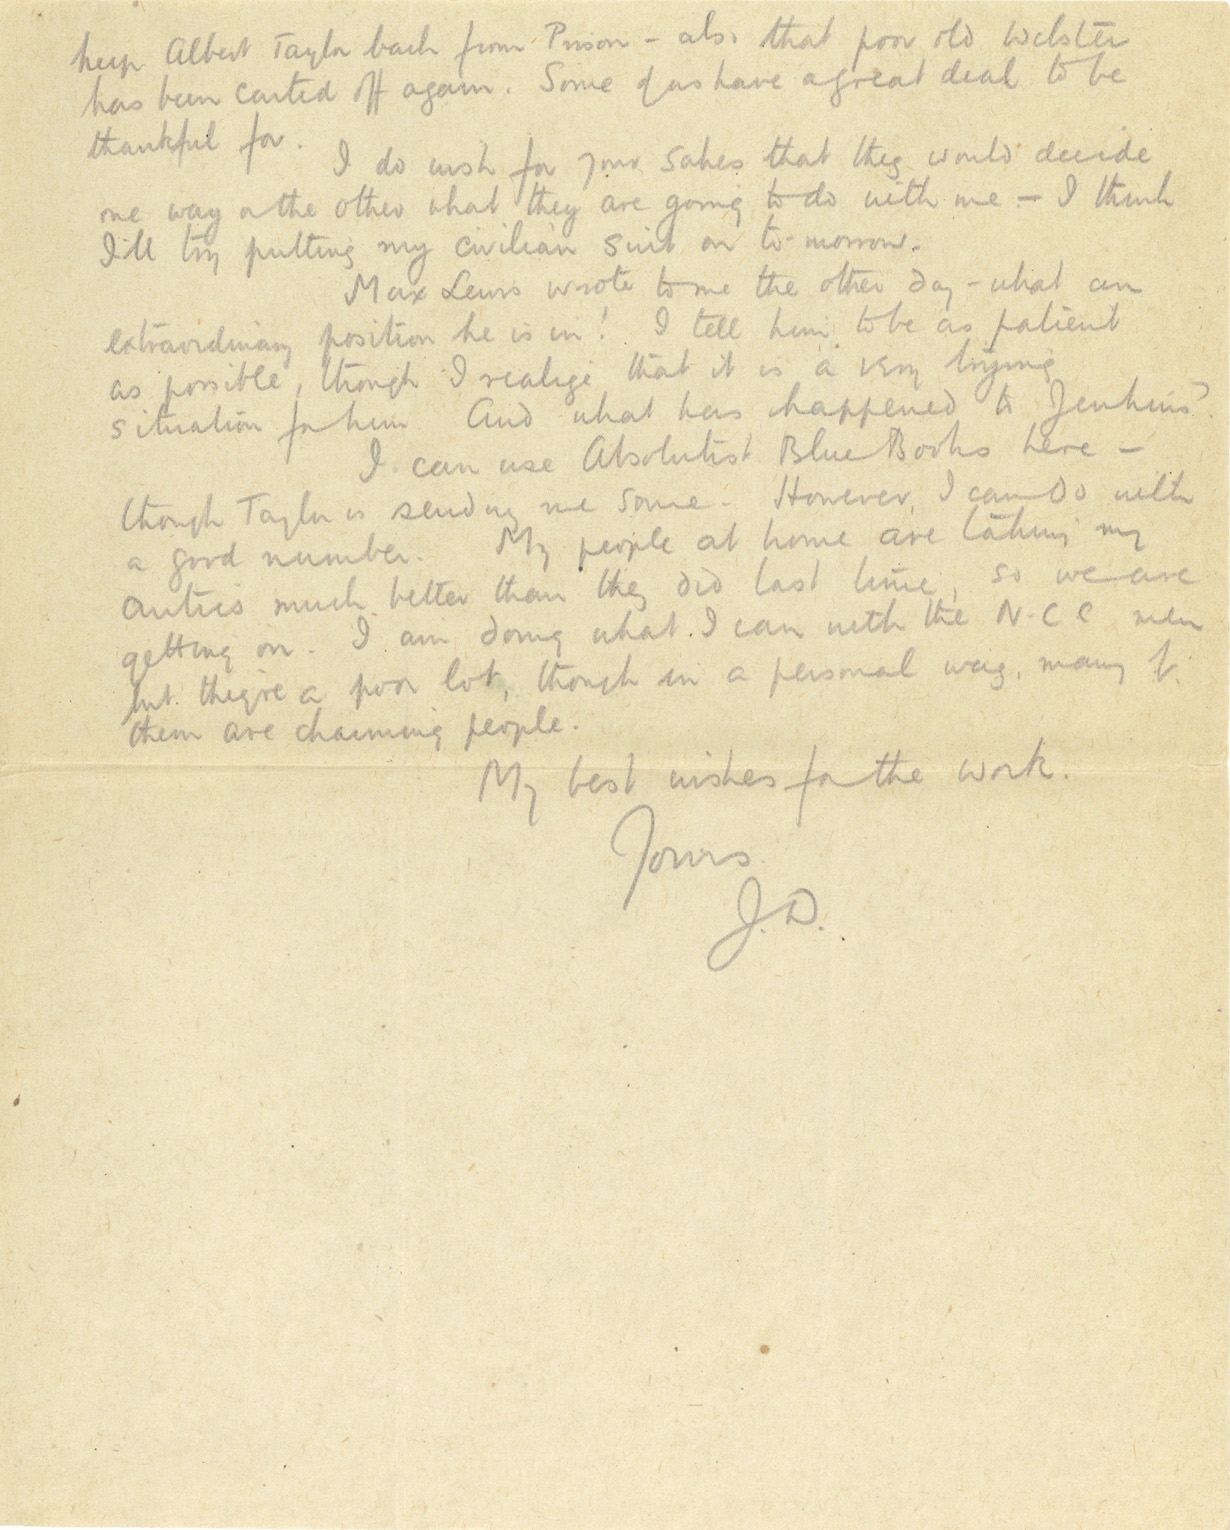 keep Albert Taylor back from Prison - also that poor old Webster
has been carted off again. Some of us have a great deal to be
thankful for.
I do wish for your sakes that they would decide
one way or the other what they are going to do with me - I think
I'll try putting my civilian suit on to-morrow.
Max Lewis wrote to me the other day - what an
extraordinary position he is in! I tell him to be as patient
as possible, though I realize that it is a very trying
situation for him And what has happened to Jenkins?
I can use Absolutist Blue Books here -
though Taylor is sending me some. However, I can do with
a good number. My people at home are taking my
antics much better than they did last time, so we are
getting on. I am doing what I can with the N.C.C men
but they're a poor lot, though in a personal way, many of
them are charming people.
My best wishes for the work.
Yours
J.D.